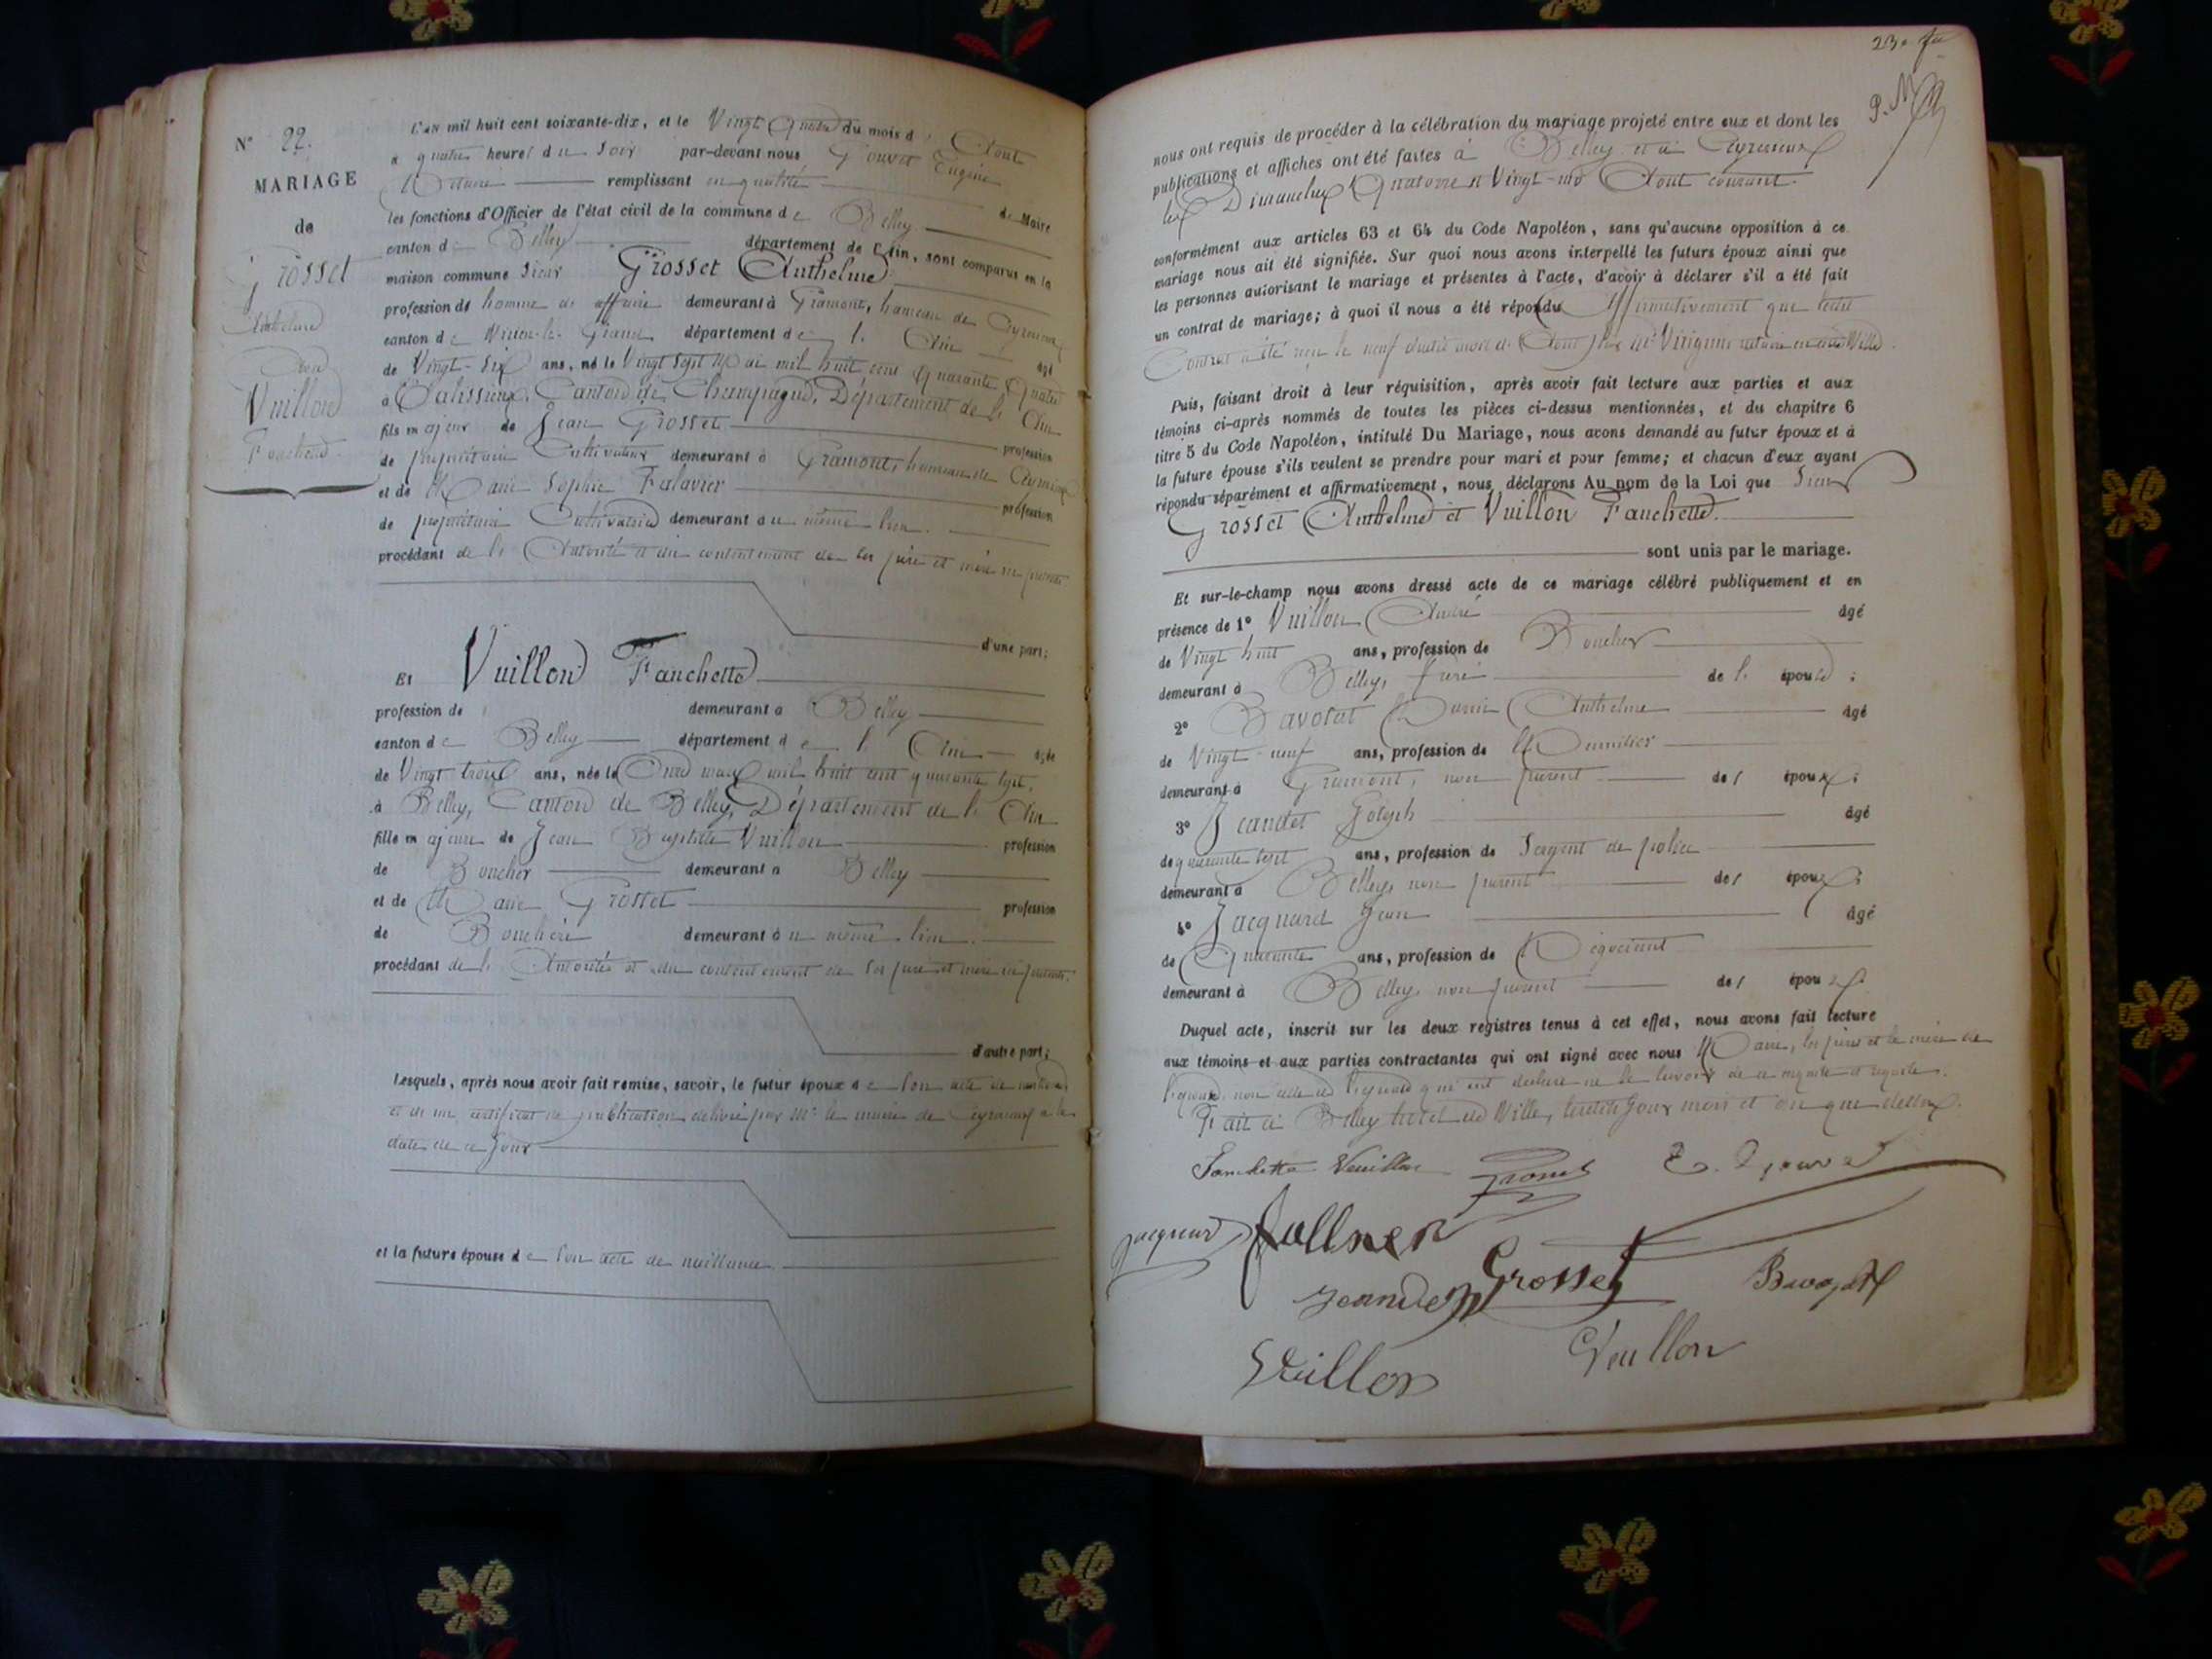 N° 22.
MARIAGE
de
Grosset
Anthelme
avec
Vuillon
Fanchette.
L'an mil huit cent soixante-dix, et le Vingt Quatre du mois d'Aout
à quatre heures du Soir par-devant nous Gouvet Eugène
Notaire remplissant en qualité de Maire
les fonctions d'Officier de l'état civil de la commune de Belley
canton de Belley département de l'Ain, sont comparus en la
maison commune Sieur Grosset Anthelme
profession de homme de affaire demeurant à Gramont, hameau de Ceyzerieux
canton de Virieu-le-Grand département de l'Ain âgé
de Vingt-Six ans, né le Vingt Sept Mai mil huit cent Quarante Quatre
à Talissieux, Canton de Champagne, Département de l'Ain
fils majeur de Jean Grosset profession
de propriétaire Cultivateur demeurant à Gramont, hameau de Ceyzerieux
et de Marie Sophie Falavier profession
de propriétaire Cultivatrice demeurant au même lieu.
procédant de l'Autorité et du contentement de ses père et mère ici présents
d'une part;
Et Vuillon Fanchette
profession de demeurant à Belley
canton de Belley département de l'Ain âgée
de Vingt trois ans, née le Onze mars mil huit cent quarante sept,
à Belley, Canton de Belley, Département de l'Ain
fille majeure de Jean Baptiste Vuillon profession
de Boucher demeurant à Belley
et de Marie Grosset profession
de Bouchère demeurant au même lieu.
procédant de l'Autorité et du contentement de ses père et mère ici présents.
d'autre part;
Lesquels, après nous avoir fait remise, savoir, le futur époux de son acte de naissance
et de un certificat de publication délivré par Mr le maire de Ceyzerieux à la
date de ce jour
et la future épouse de son acte de naissance.
23e
P. M.
nous ont requis de procéder à la célébration du mariage projeté entre eux et dont les
publications et affiches ont été faites à Belley et à Ceyzerieux
les Dimanches Quatorze et Vingt-un Aout courant.
conformément aux articles 63 et 64 du Code Napoléon, sans qu'aucune opposition à ce
mariage nous ait été signifiée. Sur quoi nous avons interpellé les futurs époux ainsi que
les personnes autorisant le mariage et présentes à l'acte, d'avoir à déclarer s'il a été fait
un contrat de mariage; à quoi il nous a été répondu Affirmativement que ledit
Contrat a été reçu le neuf dudit mois de Aout par Me notaire en cette Ville.
Puis, faisant droit à leur réquisition, après avoir fait lecture aux parties et aux
témoins ci-après nommés de toutes les pièces ci-dessus mentionnées, et du chapitre 6
titre 5 du Code Napoléon, intitulé Du Mariage, nous avons demandé au futur époux et à
la future épouse s'ils veulent se prendre pour mari et pour femme; et chacun d'eux ayant
répondu séparément et affirmativement, nous déclarons Au nom de la Loi que Sieur
Grosset Anthelme et Vuillon Fanchette.
sont unis par le mariage.
Et sur-le-champ nous avons dressé acte de ce mariage célébré publiquement et en
présence de 1° Vuillon André âgé
de Vingt huit ans, profession de Boucher
demeurant à Belley, frère de l'épouse;
2° Bavozat Marie Anthelme âgé
de Vingt-neuf ans, profession de Menuisier
demeurant à Gramont, non parent des époux;
3° Jeandet Joseph âgé
de quarante sept ans, profession de Sergent de police
demeurant à Belley, non parent des époux;
4° Jacquard Jean âgé
de Quarante ans, profession de Négociant
demeurant à Belley, non parent des époux.
Duquel acte, inscrit sur les deux registres tenus à cet effet, nous avons fait lecture
aux témoins et aux parties contractantes qui ont signé avec nous Maire, les pères et la mère de
l'époux, non celle de l'épouse qui ont déclaré ne le savoir de ce enquise et requise.
Fait à Belley hotel de Ville, lesdits jour mois et an que dessus.
Fanchette Vuillon Grosset E. Gouvet
Jacquard
Jeandet Grosset Bavozat
Vuillon Vuillon